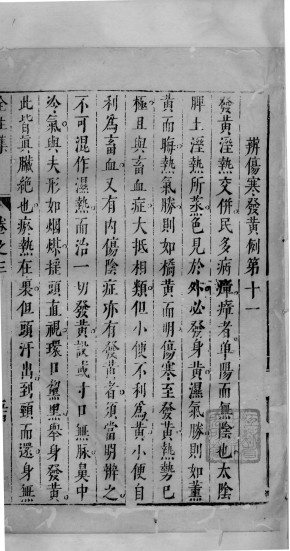 辨傷寒發黃例第十一
發黃溼熱交併民多病癉癉者單陽而無陰也太陰
脾土溼熱所蒸色見於外必發身黃濕氣勝則如薰
黃而晦熱氣勝則如橘黃而明傷寒至發黃熱勢已
極且與畜血症大抵相類但小便不利為黃小便自
利為畜血又有內傷陰症亦有發黃者須當明辨之
不可混作濕熱而治一切發黃設或寸口無脉鼻中
冷氣與夫形如烟煤搖頭直視環口黧黑舉身發黃
此皆眞臟絕也瘀熱在裏但頭汗出到頸而還身無
全生集
卷之三